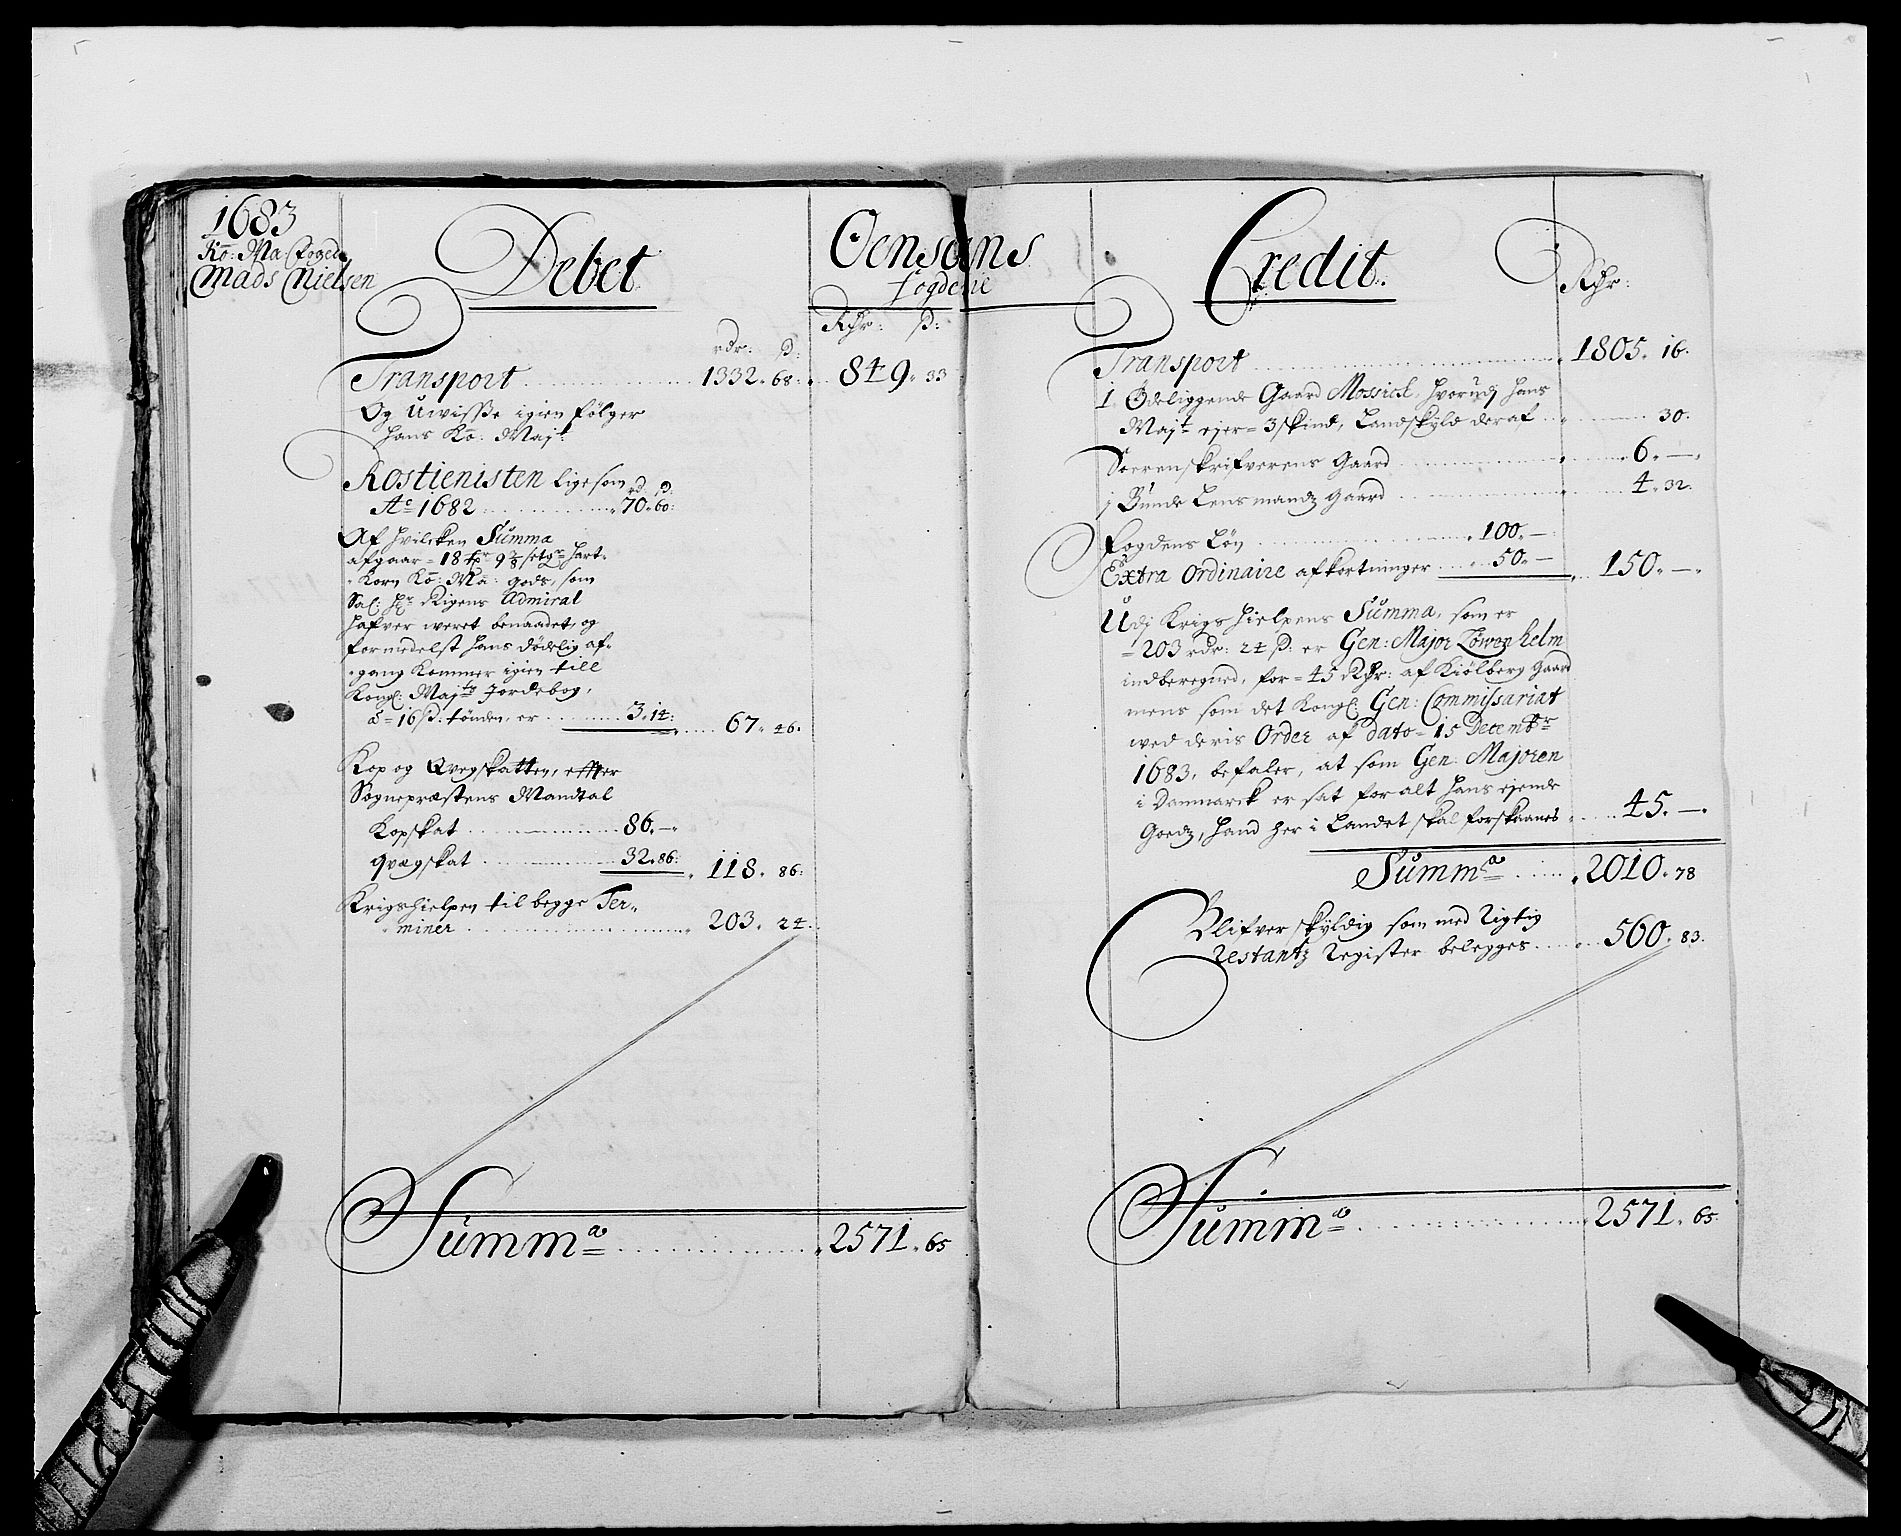 1683
Kō: Ma: Foged
Mads Nielsen
Debet
Oensøns
Fogderie
rdr: ß:
Rdr: ß:
Transport 1332. 68. 849. 33
Og Uwisse igien følger
Hans Kō: Majt.
Rostienisten ligesom rd ß:
Ao 1682 70. 60:
Af hvilcken Summa
afgaar = 18 9 3/8 hart-
Korn Kō: Ma: gods, som
Sal: Hr Rigens Admiral
hafver weret benaadet, og
formedelst hans dødelig af-
gang kommer igien till
Kongl: Majts Jordebog,
à = 16 ß: tønden, er 3. 14: 67. 46.
Kop og Qvegskatten, effter
Sognepræstens Mandtal
Kopskat 86. —
Qvægskat 32. 86: 118. 86:
Krigshielpen til begge Ter-
miner 203. 24.
Summa 2571. 65
Credit.
Rdr:
Transport 1805. 16.
1 Ødeliggende Gaard Mossick, hvorudj hans
Majt ejer = 3 skind, Landskyld deraf 30.
Sorenskrifverens Gaard 6. —
j Bunde Lensmandz Gaard 4. 32.
Fogdens Løn 100. —
Extra Ordinaire afkortninger 50. — 150. —
Udj Krigshielpens Summa, som er
= 203 rdr: 24 ß: er Gen: Major Løwenhelm
indberegned, for = 45 Rdr: af Kiølberg Gaard
mens som det Kongl: Gen: Commissariat
wed deris Order af dato = 15 Decembr
1683, befaler, at som Gen: Majoren
i Danmarck er sat for alt hans ejende
Goedz, hand her i Landet skal forskaanes 45. —
Summa 2010. 78
Blifver skyldig som med Rigtig
Restantz Register belegges 560. 83.
Summa 2571. 65